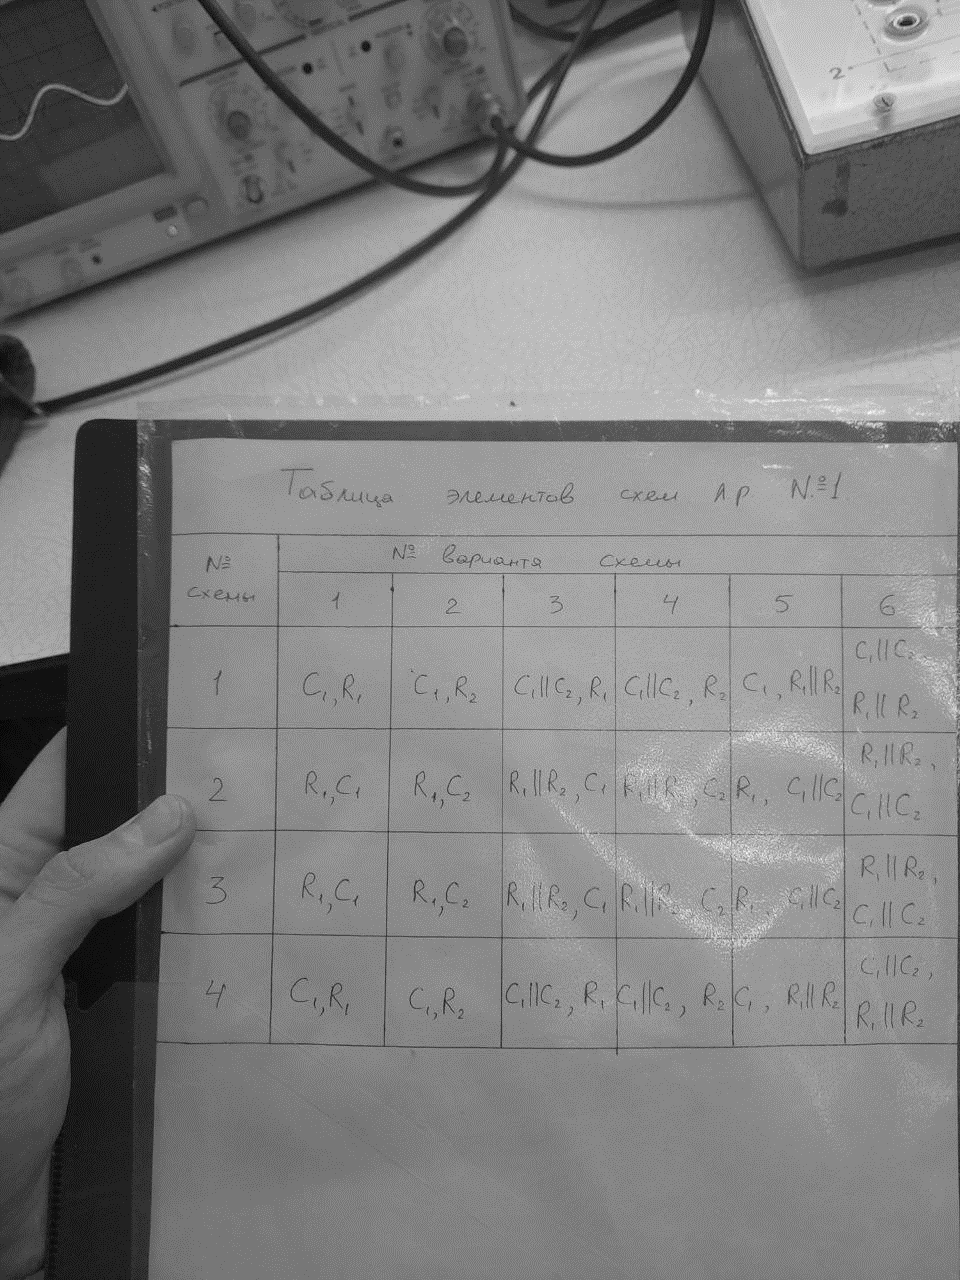 2
Таблица элементов схем ЛР №1
№ схемы № варианта схемы
1 2 3 4 5 6
1 C₁,R₁ C₁,R₂ C₁||C₂,R₁ C₁||C₂,R₂ C₁,R₁||R₂ C₁||C₂, R₁||R₂
2 R₁,C₁ R₁,C₂ R₁||R₂,C₁ R₁||R₂,C₂ R₁, C₁||C₂ R₁||R₂, C₁||C₂
3 R₁,C₁ R₁,C₂ R₁||R₂,C₁ R₁||R₂ C₂ R₁, C₁||C₂ R₁||R₂, C₁||C₂
4 C₁,R₁ C₁,R₂ C₁||C₂,R₁ C₁||C₂,R₂ C₁, R₁||R₂ C₁||C₂, R₁||R₂